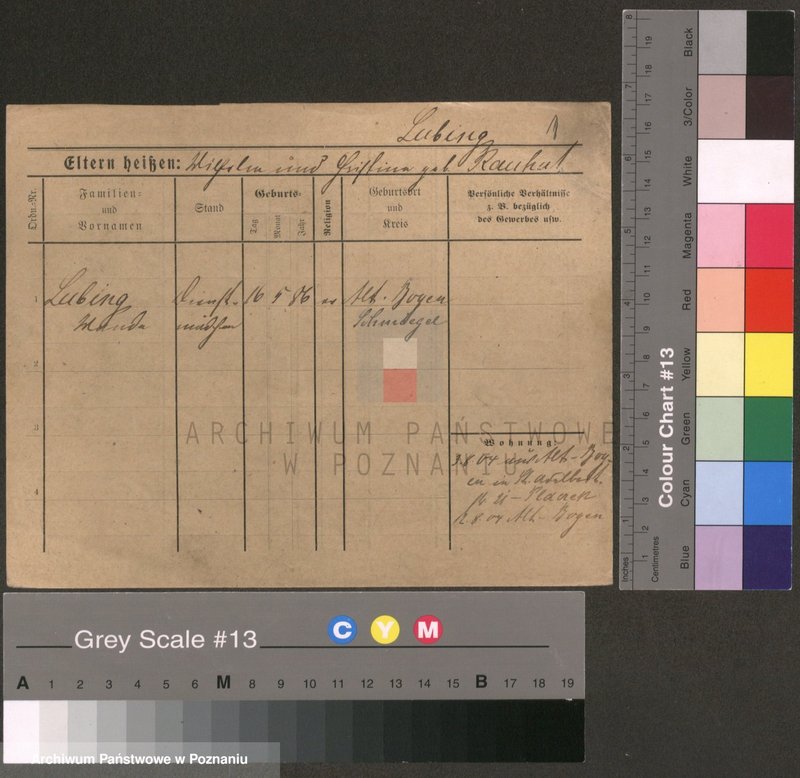 Lubing
Eltern heißen: Wilhelm und Christine geb.
Ordn.-Nr.
Familien-
und
Vornamen
Stand
Geburts-
Tag
Monat
Jahr
Religion
Geburtsort
und
Kreis
Persönliche Verhältnisse
z. B. bezüglich
des Gewerbes usw.
1
Lubing Dienst- 16 5 86 ev Alt. Boyen
Wanda mädchen Schmiegel
2
3
4
Wohnung:
8 04 aus Alt-Boy
en in St. Adalbert
8.04 Alt-Boyen
ARCHIWUM PAŃSTWOWE
W POZNANIU
Colour Chart #13
Blue
Cyan
Green
Yellow
Red
Magenta
White
3/Color
Black
Inches
1
2
3
4
5
6
7
8
Centimetres
1
2
3
4
5
6
7
8
9
10
11
12
13
14
15
16
17
18
19
Grey Scale #13
C Y M
A 1 2 3 4 5 6 M 8 9 10 11 12 13 14 15 B 17 18 19
Archiwum Państwowe w Poznaniu